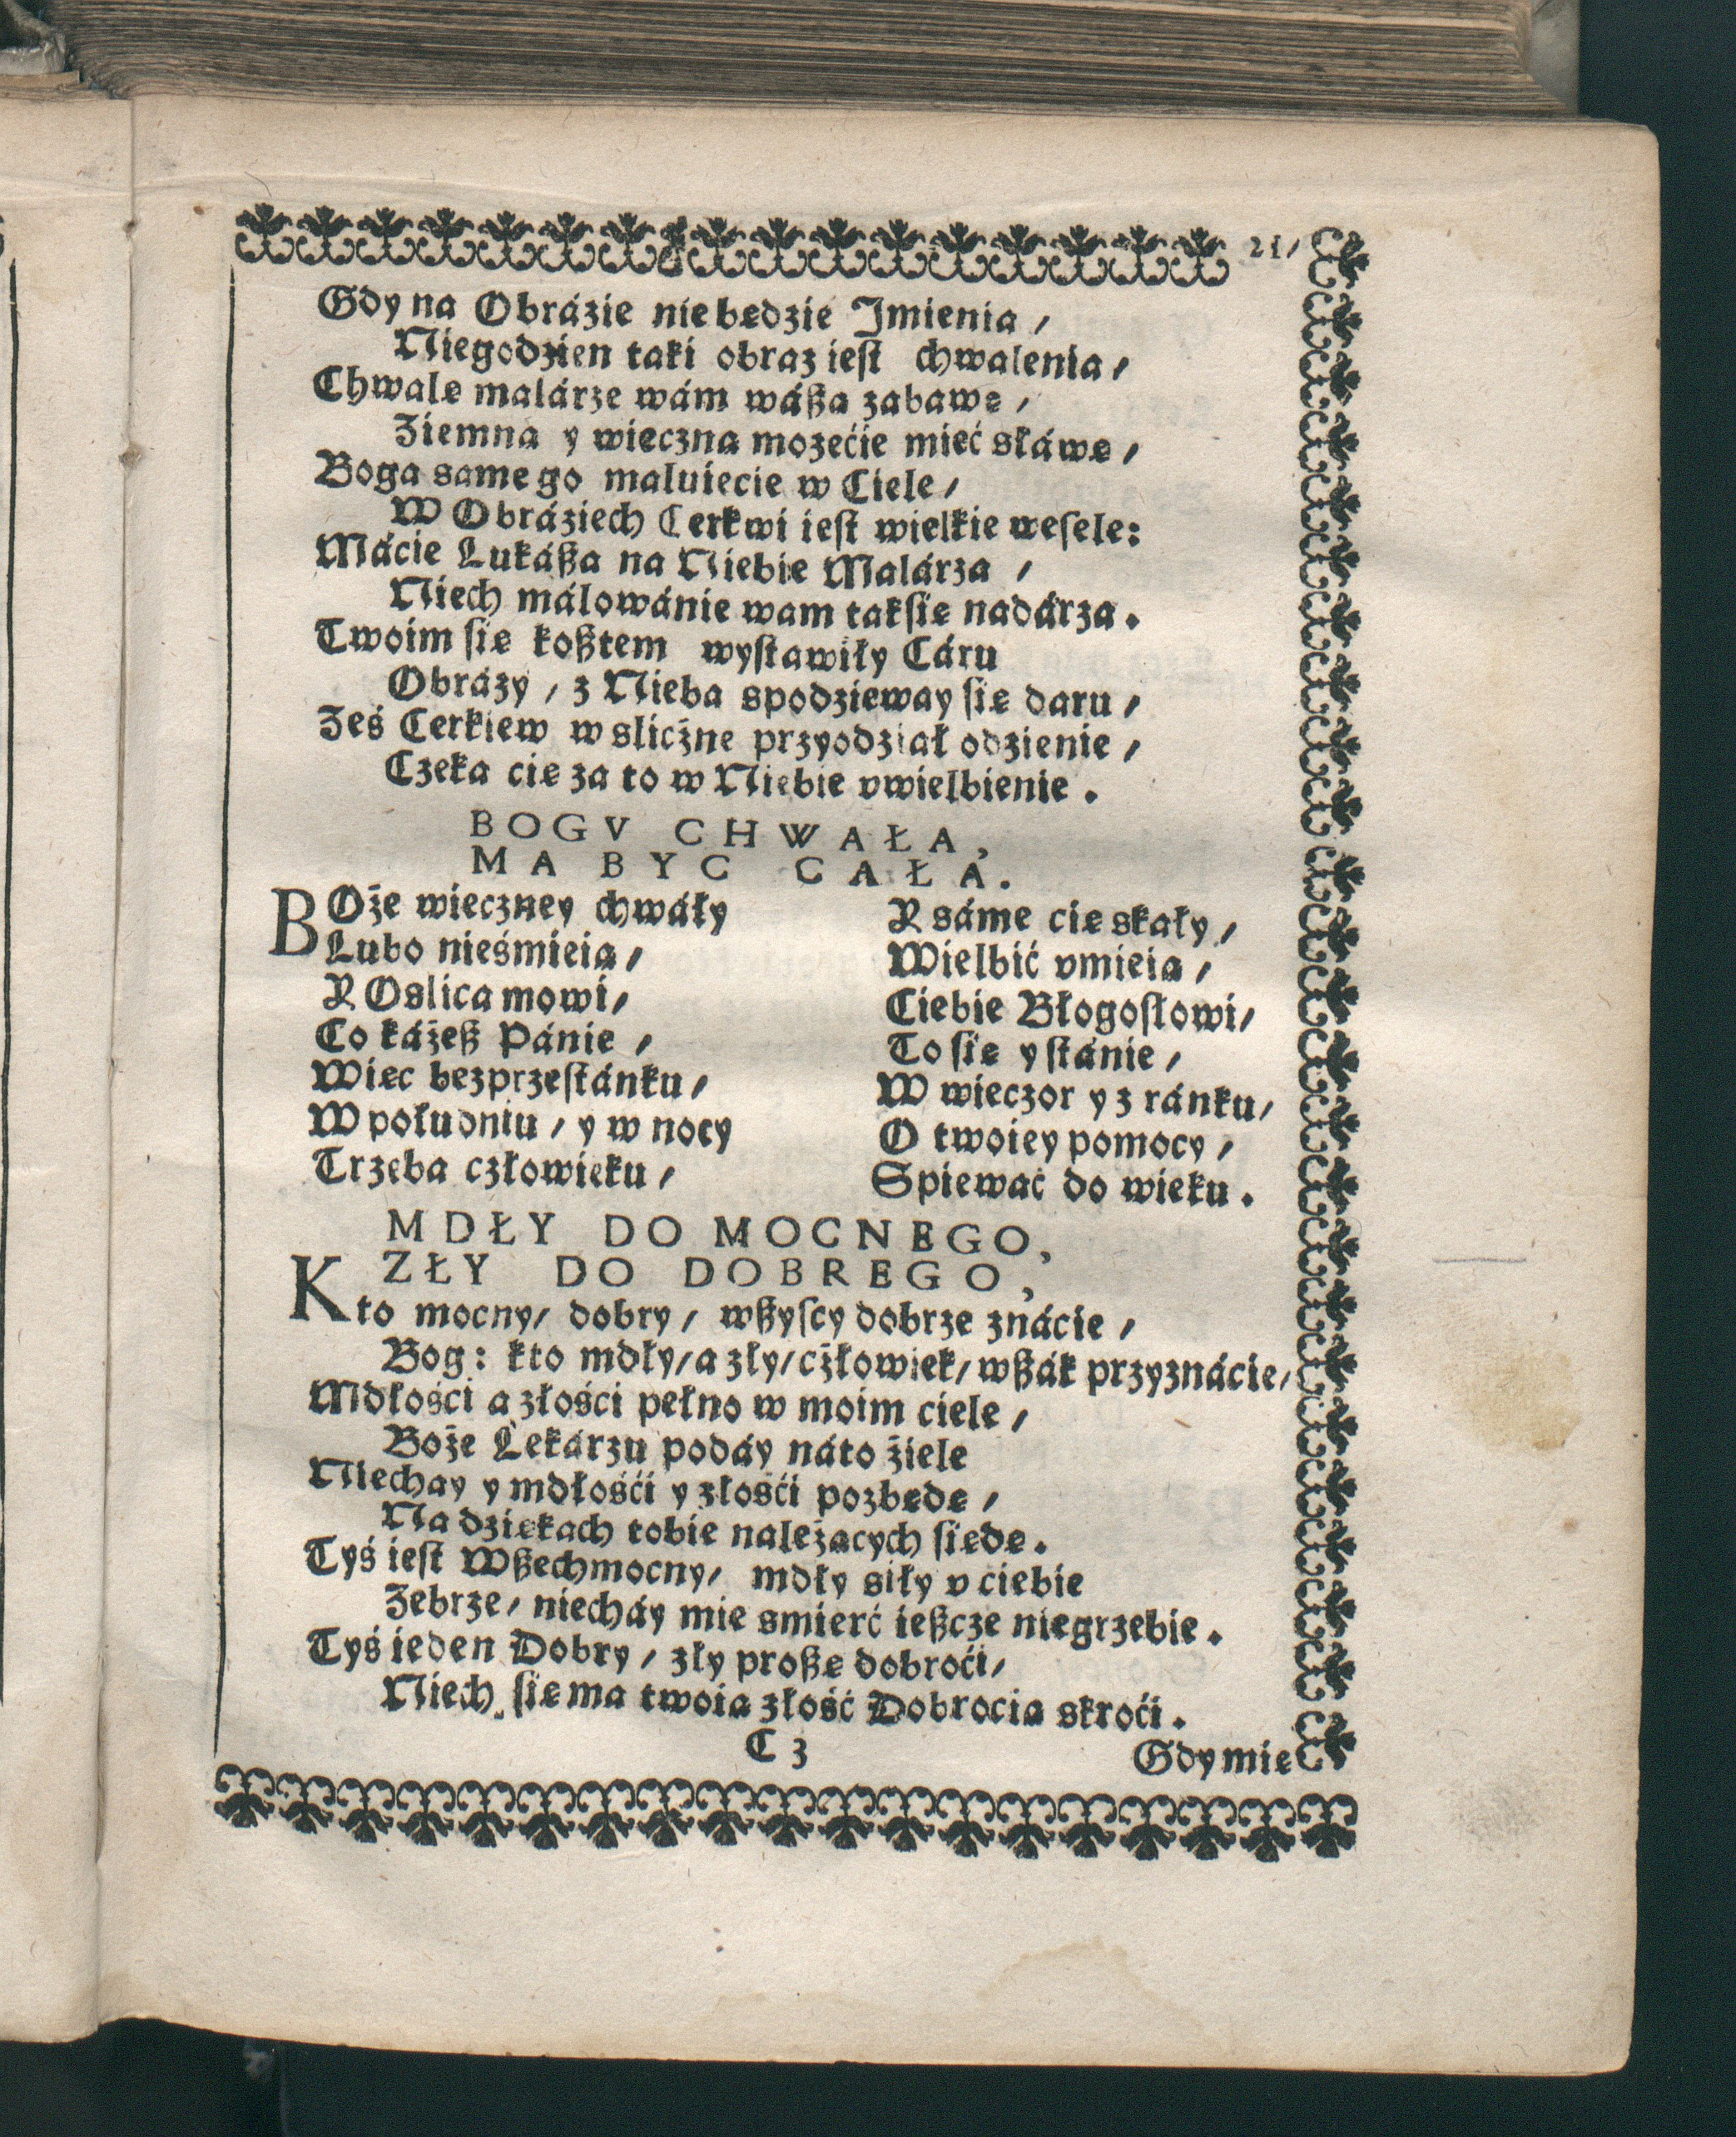 21/
Gdy na Obrázie niebędzie Jmienia /
Niegodzien taki obraz iest chwalenia /
Chwalę malárze wám wáßą zabawę /
Ziemną y wieczną mozećie mieć słáwę /
Boga samego maluiecie w Ciele /
W Obráziech Cerkwi iest wielkie wesele:
Mácie Lukáßa na Niebie Malárza /
Niech málowánie wam taksię nadárza.
Twoim się koßtem wystawiły Cáru
Obrázy / z Nieba spodzieway się daru /
Ześ Cerkiew w sliczne przyodział odzienie /
Czeka cię za to w Niebie vwielbienie.
BOGV CHWAŁA,
MA BYC CAŁA.
BOże wieczney chwáły
Y sáme cię skały /
Lubo nieśmieią /
Wielbić vmieią /
Y Oslica mowi /
Ciebie Błogosłowi /
Co każeß Pánie /
To się y stánie /
Więc bezprzestánku /
W wieczor y z ránku /
W południu / y w nocy
O twoiey pomocy /
Trzeba człowieku /
Spiewać do wieku.
MDŁY DO MOCNEGO,
ZŁY DO DOBREGO,
Kto mocny / dobry / wßyscy dobrze znácie /
Bog: kto mdły / a zły / człowiek / wßák przyznácie /
Mdłości a złości pełno w moim ciele /
Boże Lekárzu podáy náto źiele
Niechay y mdłośći y złośći pozbędę /
Na dziękach tobie należących siędę.
Tyś iest Wßechmocny / mdły siły v ciebie
Zebrze / niecháy mie smierć ießcze niegrzebie.
Tyś ieden Dobry / zły proßę dobroći /
Niech się ma twoią złość Dobrocią skroći.
C 3
Gdy mię